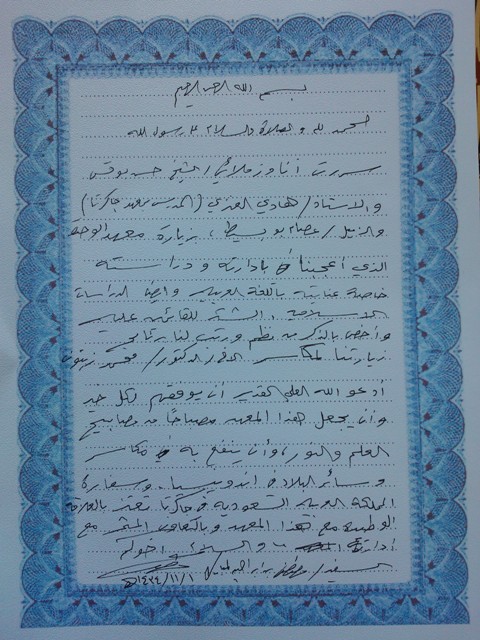 بسم الله الرحمن الرحيم
الحمد لله والصلاة والسلام على رسول الله
سررت أنا وزملائي / الشيخ حسن
والأستاذ / هادي العنزي (المدرس بمعهد جاكرتا)
والزميل / عصام بو بسيط، بزيارة معهد الوحدة
الذي أعجبنا بإدارته ودراسته
خاصة عنايته باللغة العربية وأيضا الدراسات
الإسلامية، الشكر للقائمين عليه
وأخص بالذكر من نظم ورتب لنا برنامج
زيارتنا لمكاسر الأخ الدكتور / محمد زيتون
أدعو الله العلي القدير أن يوفقهم لكل خير
وأن يجعل هذا المعهد مصباحاً من مصابيح
العلم والنور، وأن ينفع به مكاسر
وسائر البلاد في اندونيسيا، وسفارة
المملكة العربية السعودية في جاكرتا تعتز بالعلاقة
الوطيدة مع هذا المعهد وبالتعاون المثمر مع
إدارة والسلام أخوكم
السفير / بن إبراهيم المبارك
١٤٣٤/١١/١٠هـ